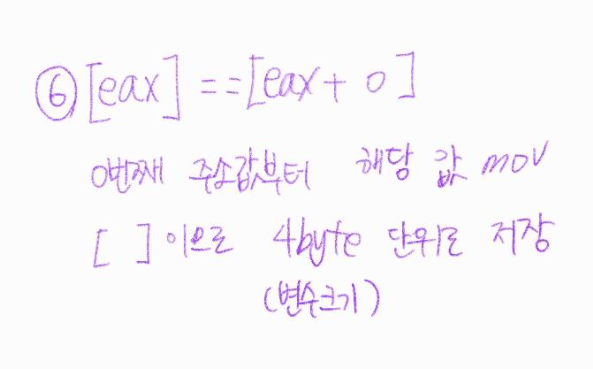 ⑥ [eax] == [eax + 0]
0번째 주소값부터 해당 값 mov
[ ] 이므로 4byte 단위로 저장
(변수크기)